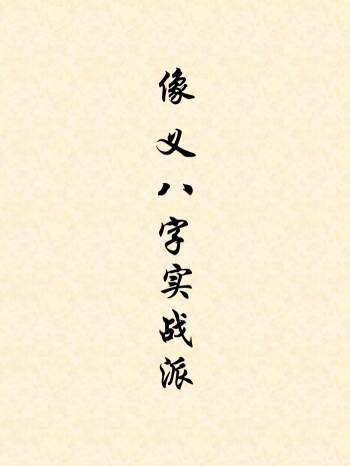 像义八字实战派